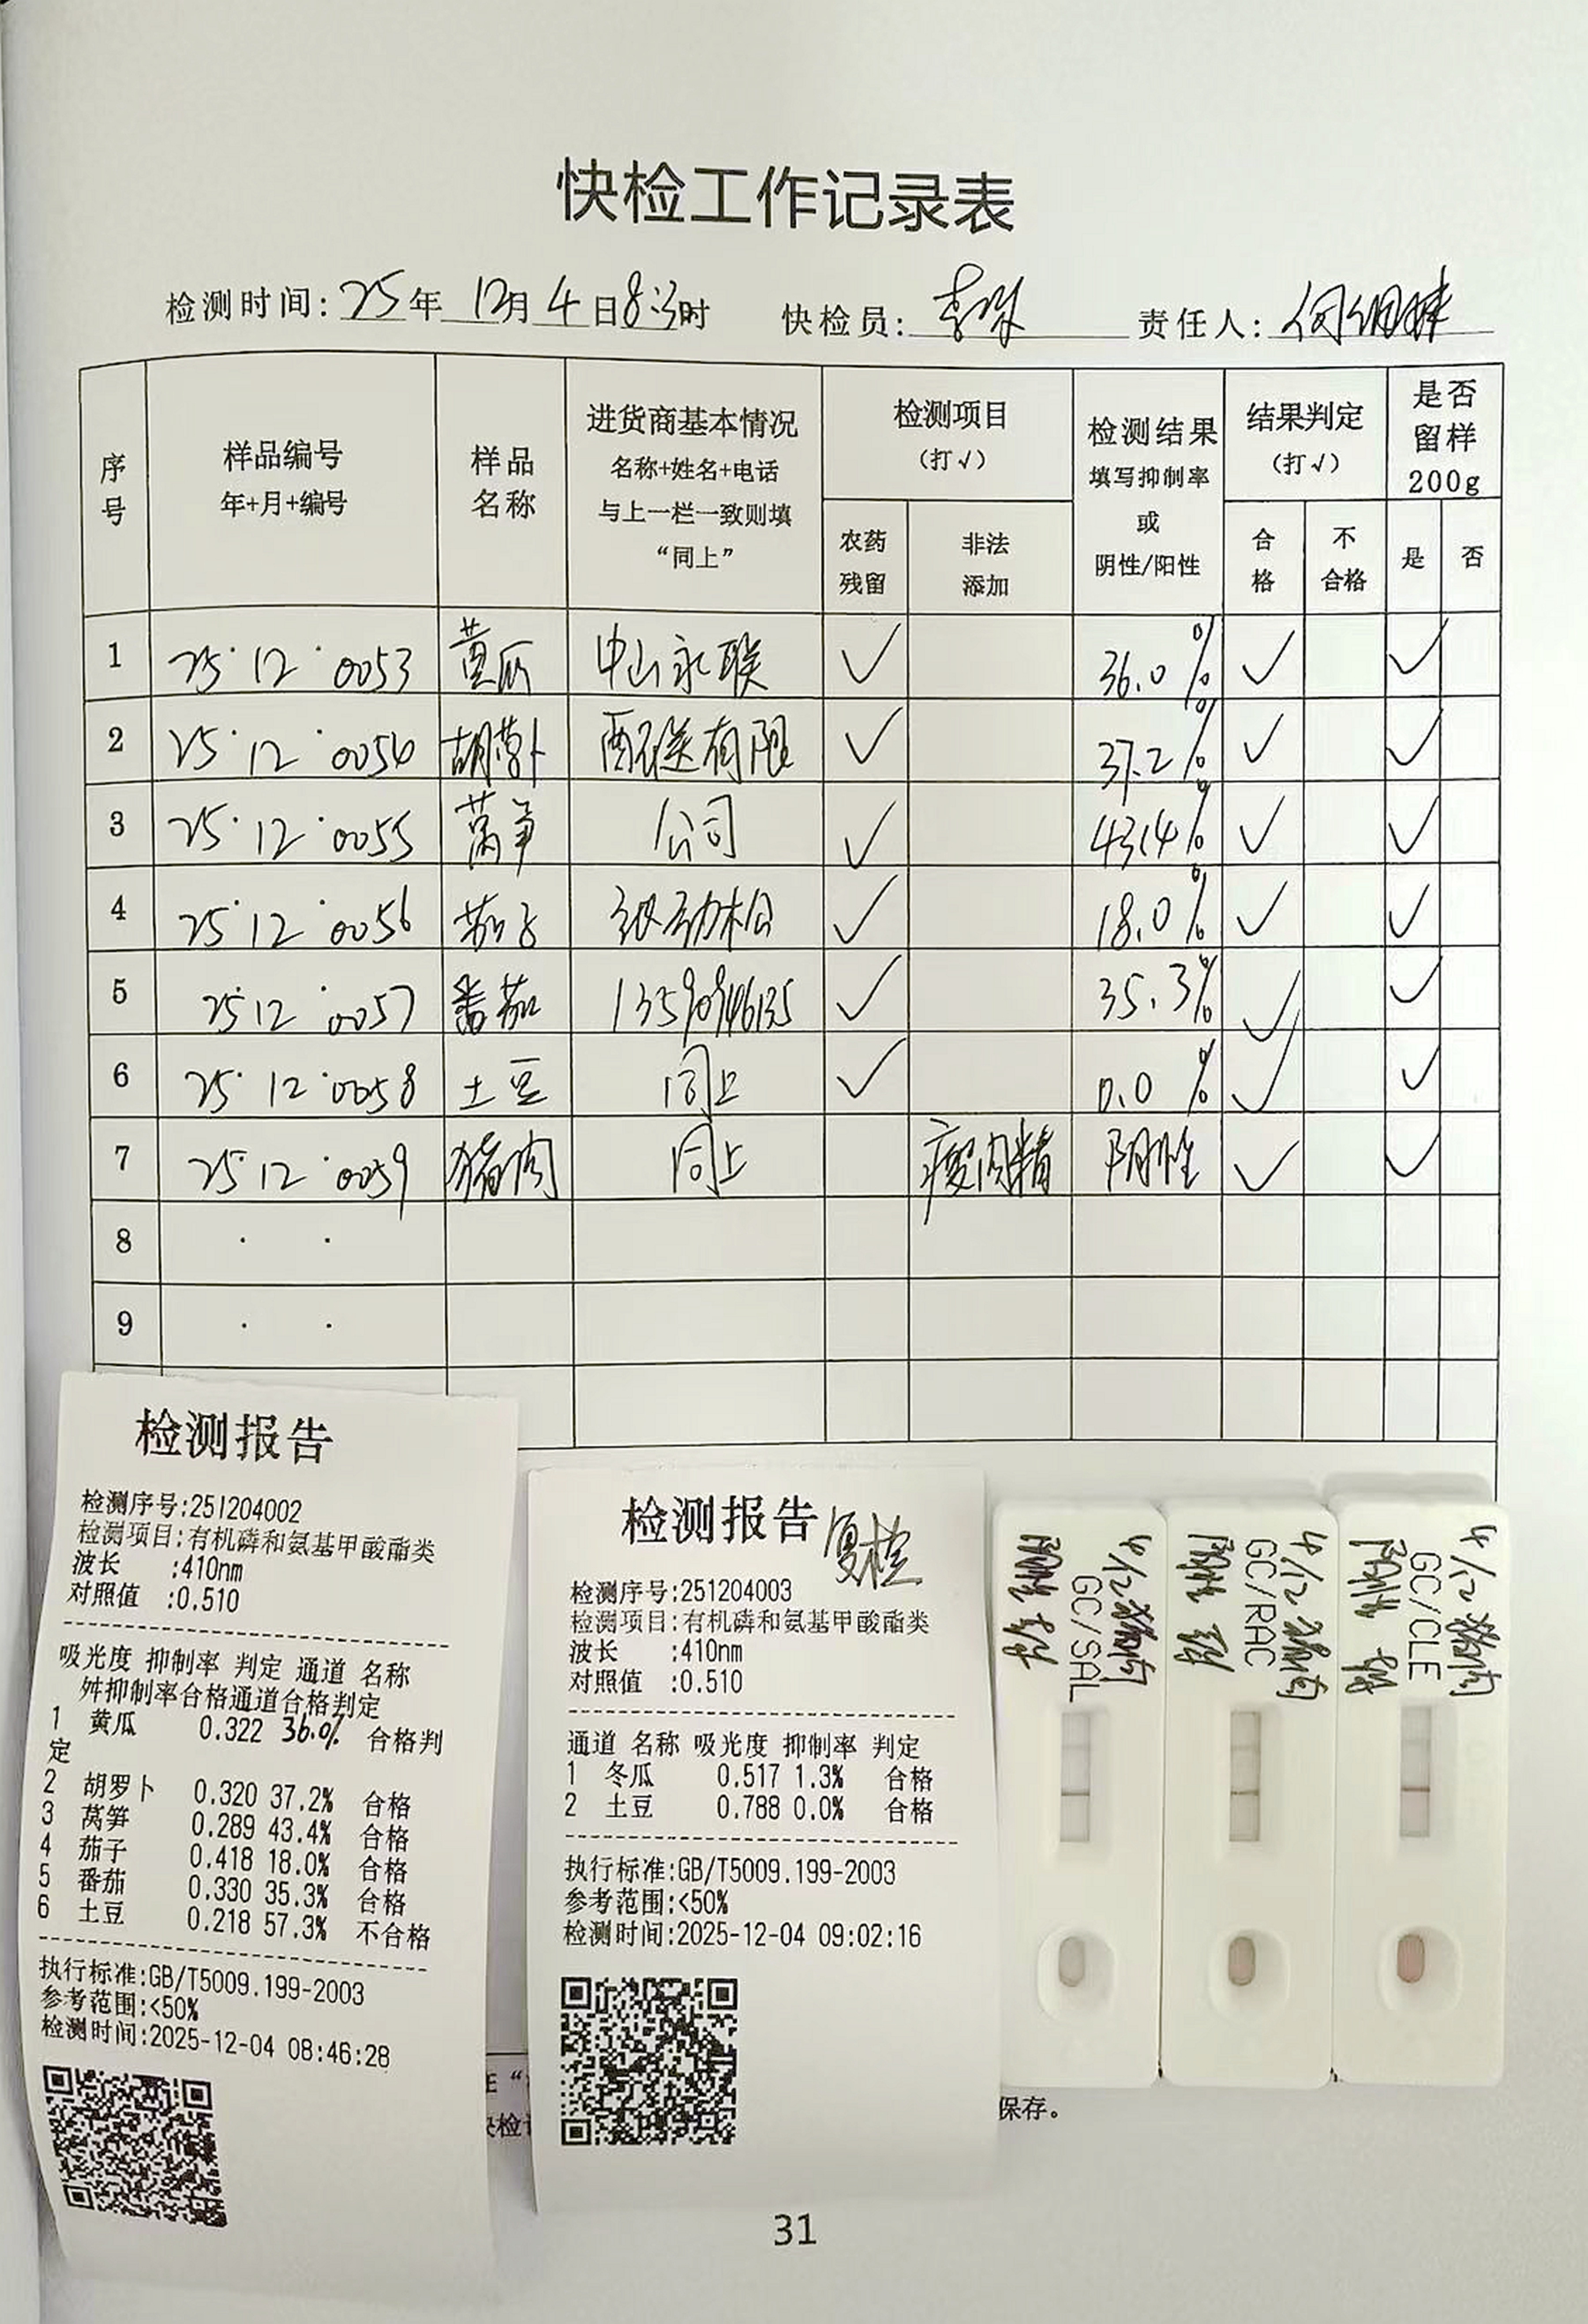 快检工作记录表
检测时间: 25年 12月 4日8:3时 快检员: 责任人:
序号 样品编号 年+月+编号 样品名称 进货商基本情况 名称+姓名+电话 与上一栏一致则填 “同上” 检测项目 (打√) 农药残留 非法添加 检测结果 填写抑制率 或 阴性/阳性 结果判定 (打√) 合格 不合格 是否留样 200g 是 否
1 25·12·0053 黄瓜 中山永联 ✓ 36.0% ✓ ✓
2 25·12·0054 胡萝卜 配送有限 ✓ 37.2% ✓ ✓
3 25·12·0055 莴笋 公司 ✓ 43.4% ✓ ✓
4 25·12·0056 茄子 ✓ 18.0% ✓ ✓
5 25·12·0057 番茄 ✓ 35.3% ✓ ✓
6 25·12·0058 土豆 同上 ✓ 0.0% ✓ ✓
7 25·12·0059 猪肉 同上 瘦肉精 阴性 ✓ ✓
8 · ·
9 · ·
检测报告
检测序号:251204002
检测项目:有机磷和氨基甲酸酯类
波长 :410nm
对照值 :0.510
吸光度 抑制率 判定 通道 名称
舛抑制率合格通道合格判定
1 黄瓜 0.322 36.0% 合格判
定
2 胡罗卜 0.320 37.2% 合格
3 莴笋 0.289 43.4% 合格
4 茄子 0.418 18.0% 合格
5 番茄 0.330 35.3% 合格
6 土豆 0.218 57.3% 不合格
执行标准:GB/T5009.199-2003
参考范围:<50%
检测时间:2025-12-04 08:46:28
检测报告 复检
检测序号:251204003
检测项目:有机磷和氨基甲酸酯类
波长 :410nm
对照值 :0.510
通道 名称 吸光度 抑制率 判定
1 冬瓜 0.517 1.3% 合格
2 土豆 0.788 0.0% 合格
执行标准:GB/T5009.199-2003
参考范围:<50%
检测时间:2025-12-04 09:02:16
4/12 猪肉
GC/SAL
阴性
4/12 猪肉
GC/RAC
阴性
4/12 猪肉
GC/CLE
阴性
保存。
31